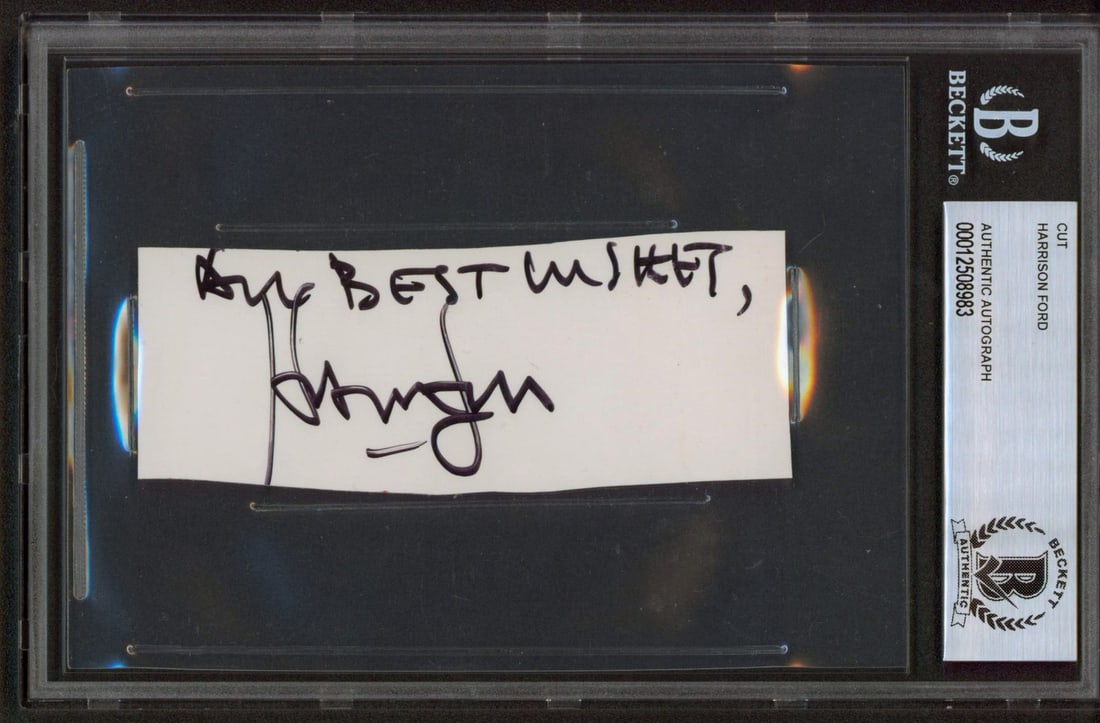 ALL BEST WISHES,
BECKETT®
CUT
HARRISON FORD
AUTHENTIC AUTOGRAPH
00012508983
B
BECKETT
B
AUTHENTIC